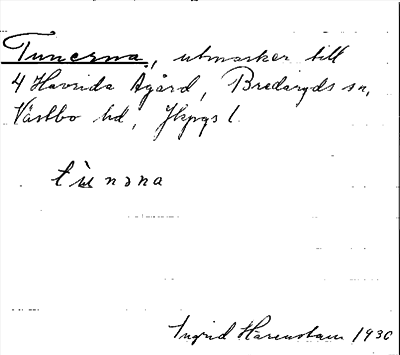 Tunerna, utmarker till
4 Havrida Ågård, Bredaryds sn,
Västbo hd, Jkpgs l.
tùnәna
Ingrid Härenstam 1930